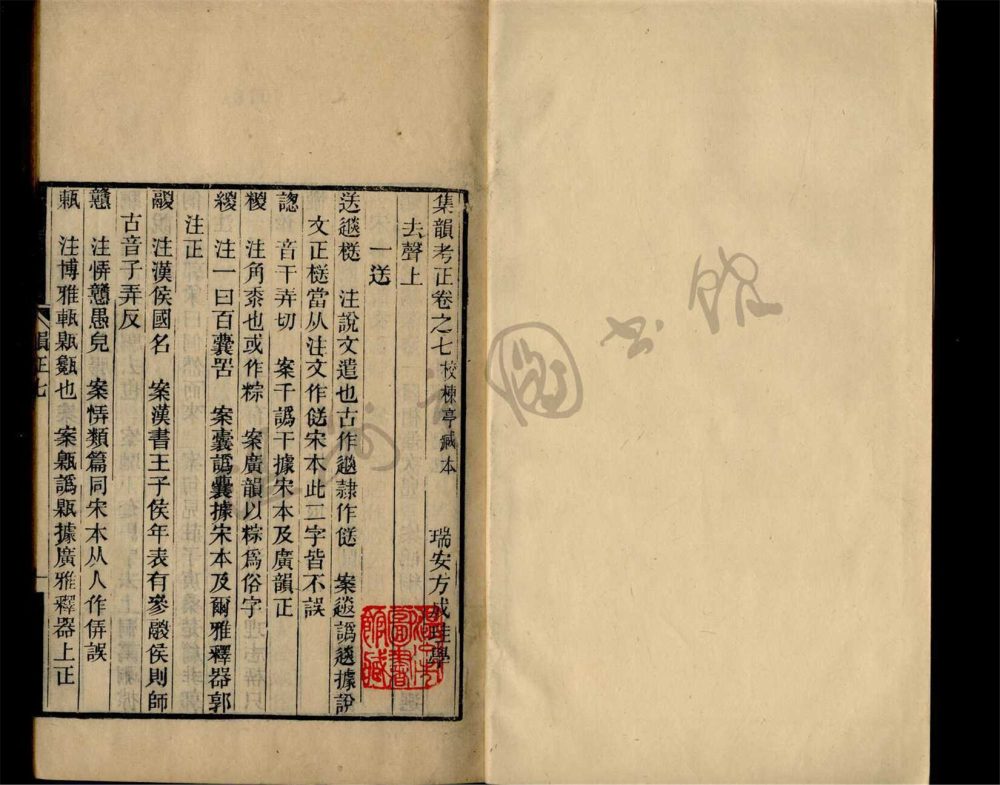 集韻考正卷之七 校楝亭藏本 瑞安方成珪學
去聲上
一送
送 注說文遣也古作 隸作 案 譌 據說
文正 當从注文作 宋本此二字皆不誤
謥 音干弄切 案千譌干據宋本及廣韻正
糉 注角黍也或作粽 案廣韻以粽爲俗字
緵 注一曰百囊罟 案囊譌 據宋本及爾雅釋器郭
注正
鬷 注漢侯國名 案漢書王子侯年表有參鬷侯則師
古音子弄反
戇 注愩戇愚皃 案愩類篇同宋本从人作 誤
注博雅 也 案 譌 據廣雅釋器上正
韻正七
一
圖書館
溫州市
圖書
館藏